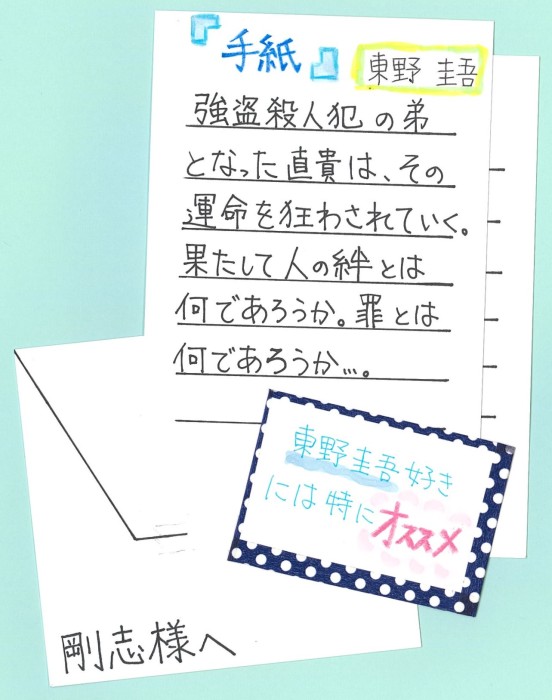 『手紙』
東野 圭吾
強盗殺人犯の弟
となった直貴は、その
運命を狂わされていく。
果たして人の絆とは
何であろうか。罪とは
何であろうか…。
東野圭吾好き
には特にオススメ
剛志様へ